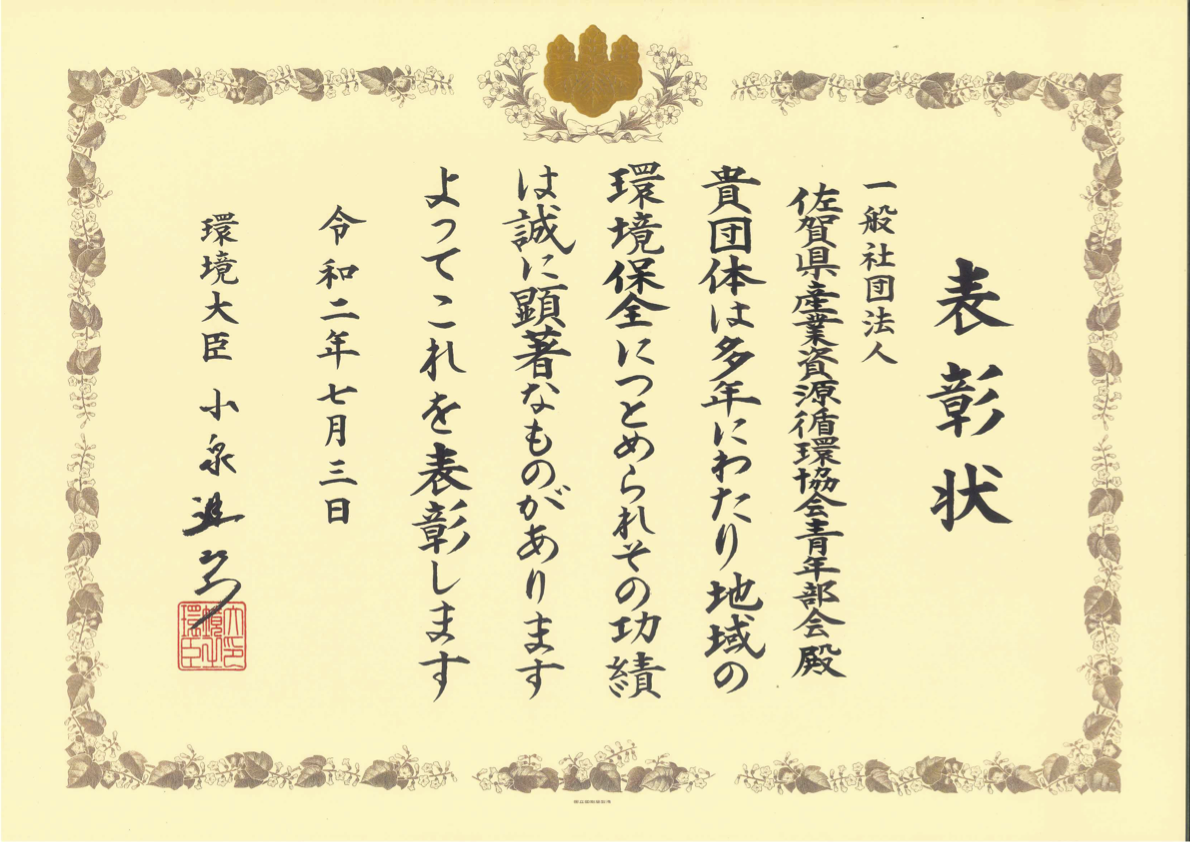 表彰状
一般社団法人
佐賀県産業資源循環協会青年部会殿
貴団体は多年にわたり地域の
環境保全につとめられその功績
は誠に顕著なものがあります
よってこれを表彰します
令和二年七月三日
環境大臣 小泉進次郎
環境大臣之印